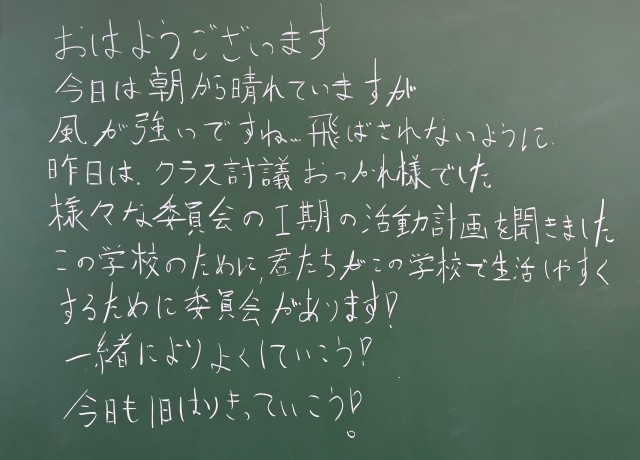 おはようございます
今日は朝から晴れていますが
風が強いですね…飛ばされないように
昨日は、クラス討議おつかれ様でした
様々な委員会のⅠ期の活動計画を聞きました
この学校のために、君たちがこの学校で生活しやすく
するために委員会があります!
一緒によりよくしていこう!
今日も1日はりきっていこう!